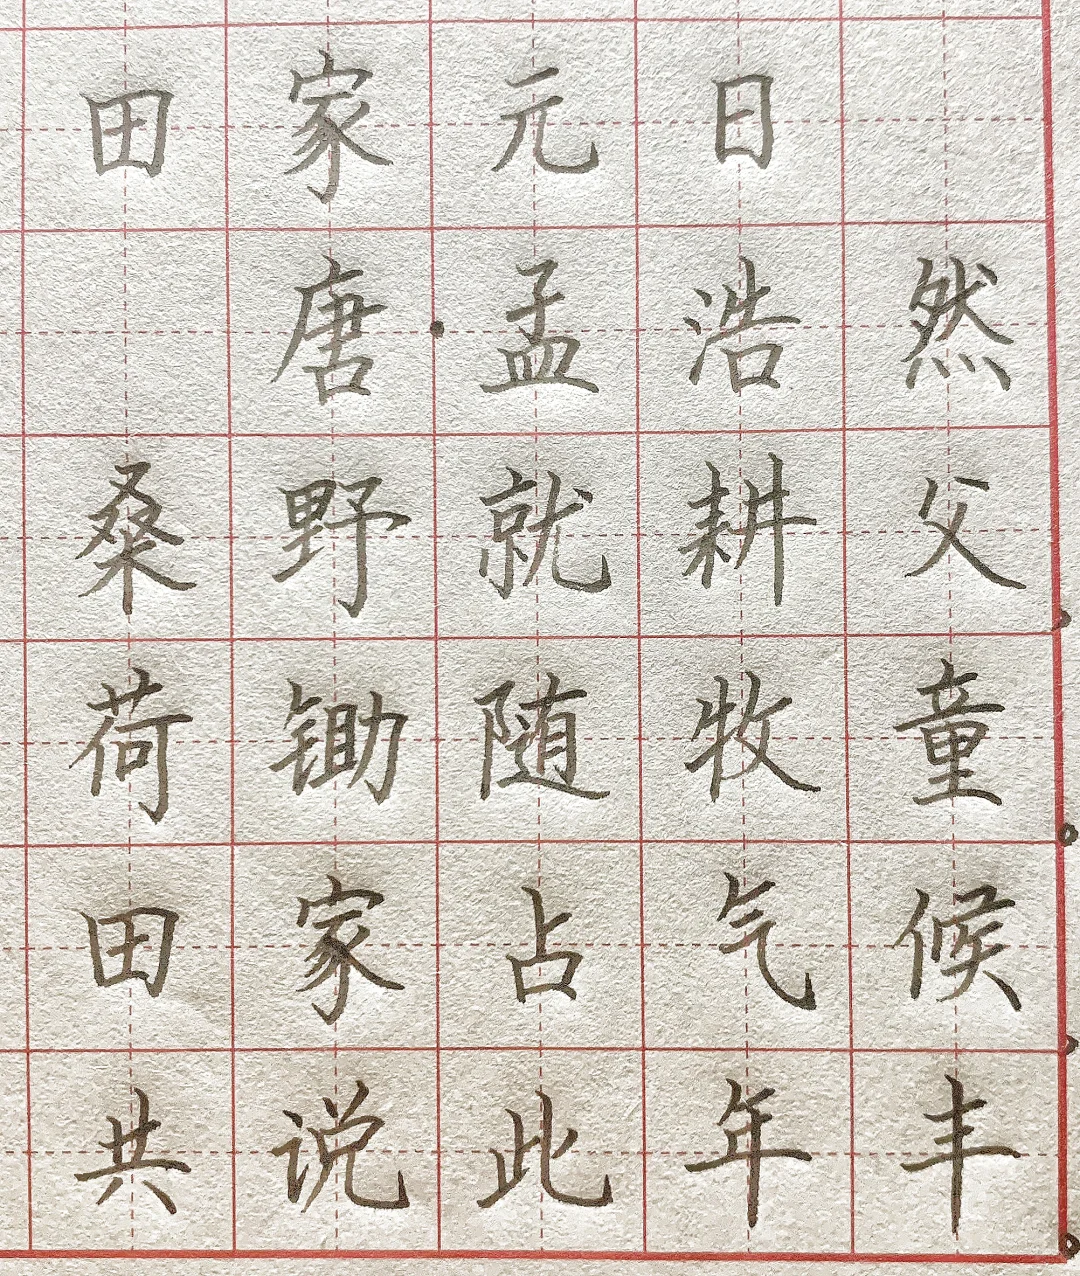 田家元日
唐·孟浩然
桑野就耕父，
荷锄随牧童。
田家占气候，
共说此年丰。